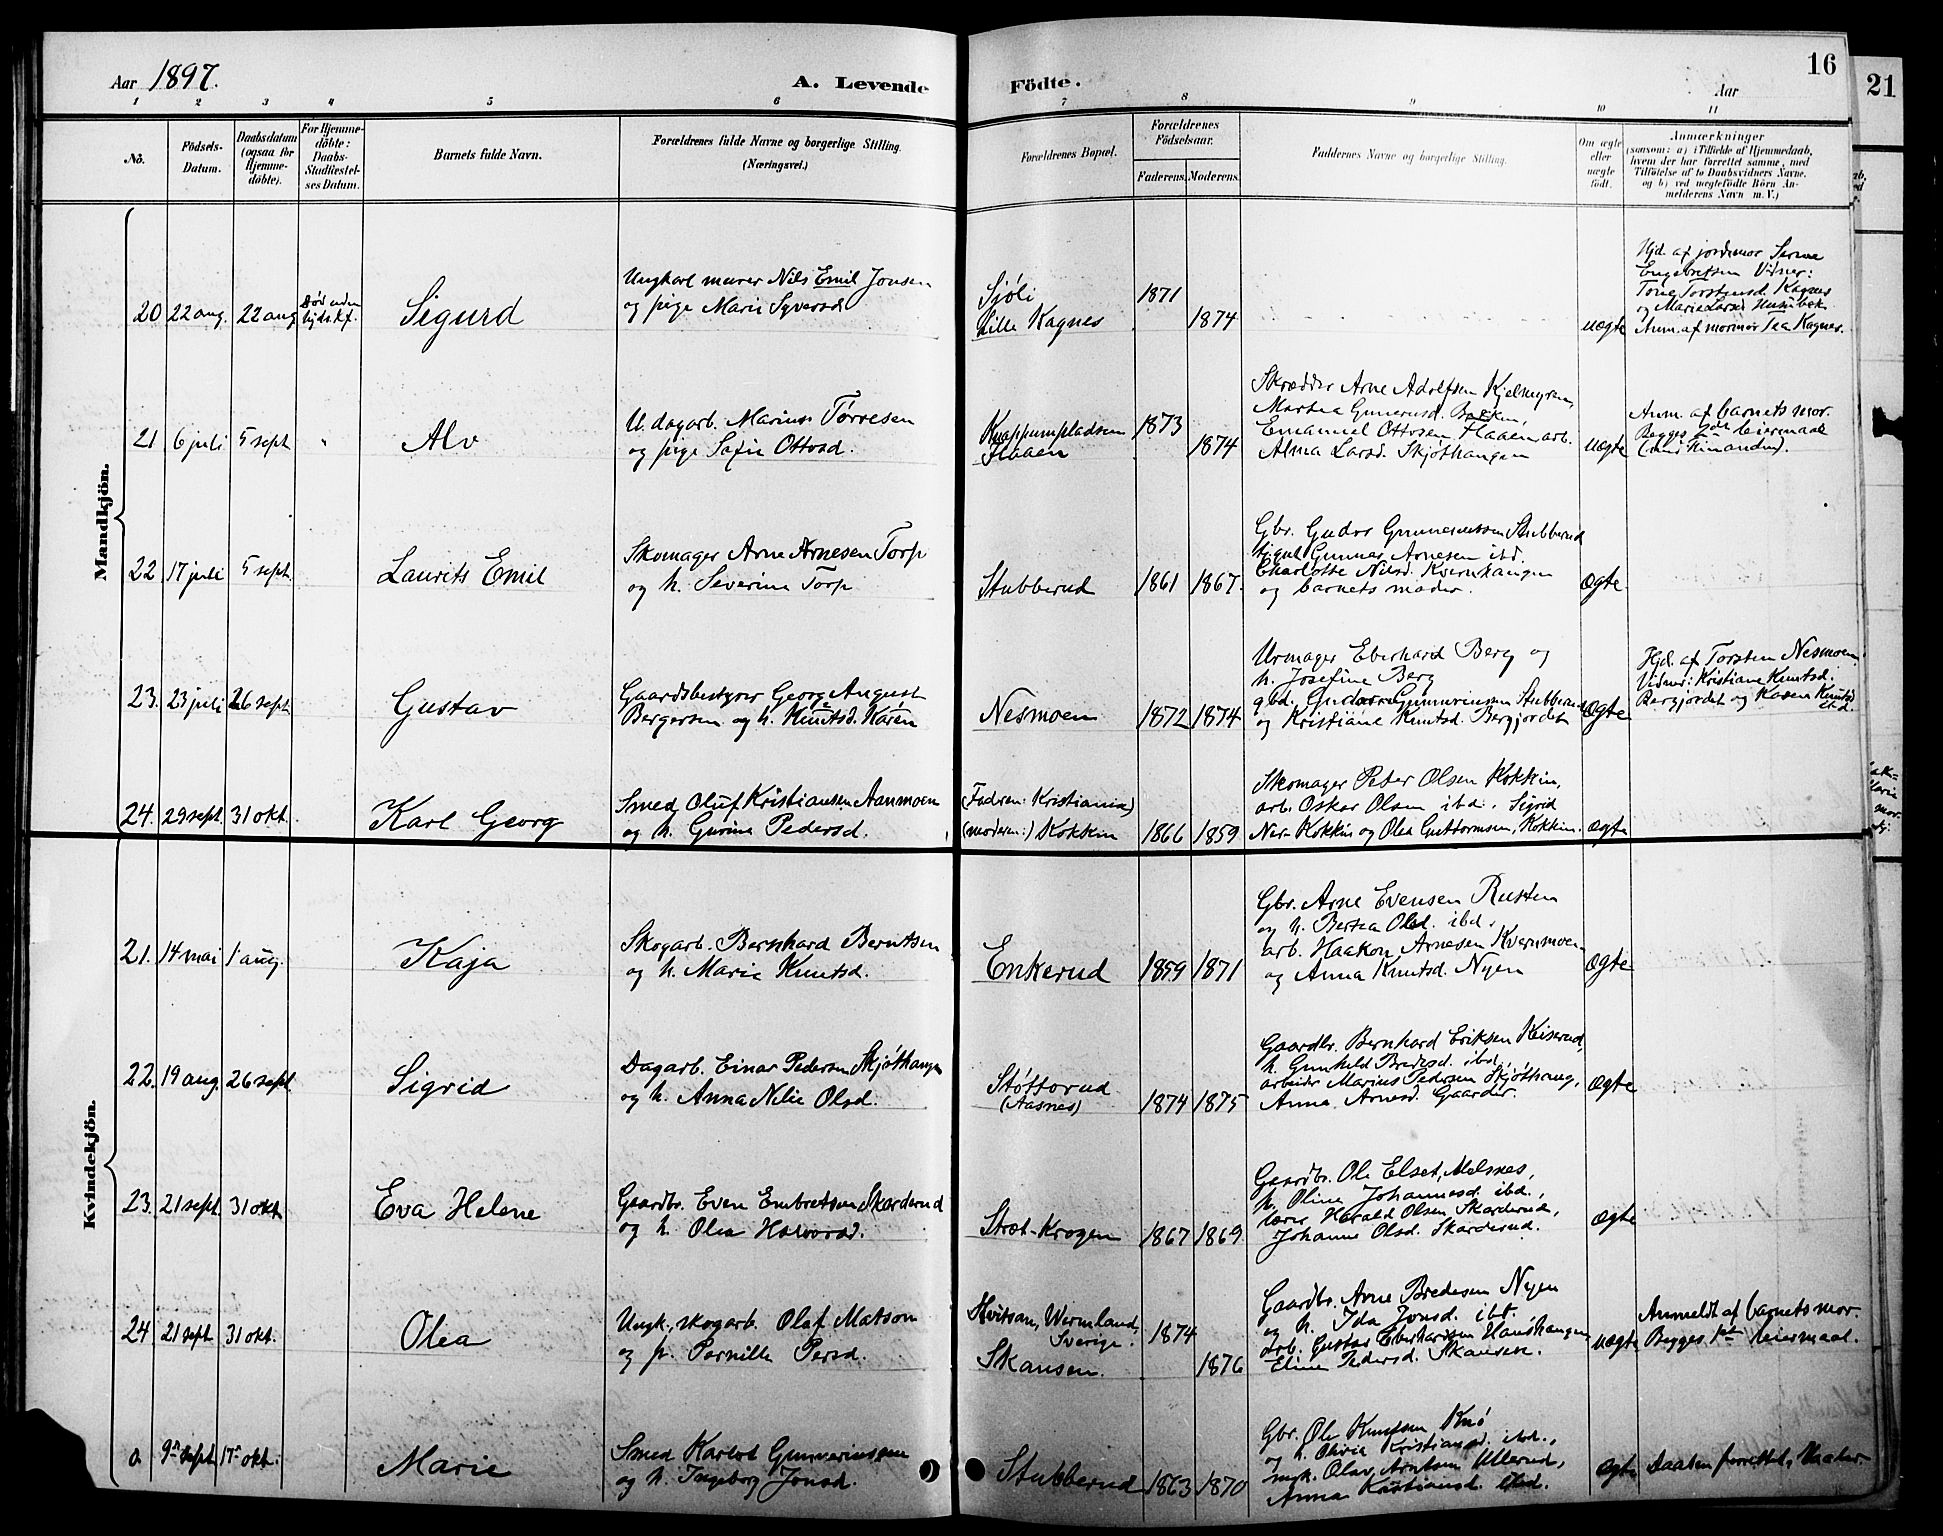 Aar 1897.
A. Levende Födte.
16
Aar
21
1 2 3 4 5 6 7 8 9 10 11
No.
Födsels-Datum.
Daabsdatum (ogsaa for Hjemme-döbte).
For Hjemme-döbte: Daabs-Stadfæstel-ses Datum.
Barnets fulde Navn.
Forældrenes fulde Navne og borgerlige Stilling.
(Næringsvei.)
Forældrenes Bopæl.
Forældrenes Födselsaar.
Faderens. Moderens.
Faddernes Navne og borgerlige Stilling.
Om ægte eller uægte födt.
Anmærkninger
(saasom: a) i Tilfælde af Hjemmedaab,
hvem der har forrettet samme, med
Tilföielse af to Daabsvidners Navne.
og b) ved uægtefödte Börn An-
melderens Navn m. V.)
Mandkjön.
20 22 aug. 22 aug Död uden Sigurd
Ungkarl murer Nils Emil Jonsen
og pige Marie Syversd
Sjöli
Lille Kagnes
1871
1874
uægte
Hjd. af jordemor
Engebretsen Vidner:
Tone Torstensd. Kagnes
og Marie Larsd.
Anm. af mormor Kagnes.
21 6 juli 5 sept " Alv
U. dagarb. Marius Törresen
og pige Sofie Ottosd.
Knappumpladsen
Haaen
1873
1874
Skrædder Arne Adolfsen
Martea Gunerusd. Bakken,
Emanuel Ottosen Haaen arb.
Alma Larsd. Skjöthaugen
uægte
Anm. af barnets mor.
Begges 1ste leiermaal
(med hinanden).
22 17 juli 5 sept Laurits Emil
Skomager Arne Arnesen Torp
og h. Severine Torp
Stubberud
1861 1867.
Gbr. Gudor Gunneriussen Stubberud
Gunnar Arnesen ibd.
Charlotte Nilsd. Kvernhaugen
og barnets moder.
Ægte
23. 23 juli 26 sept Gustav
Gaardsbestyrer Georg August
Bergersen og h. Knutsd. Karen
Nesmoen
1872 1874
Urmager Eberhard Berg og
h. Josefine Berg
gbd. Gudor Gunneriusen Stubberud
og Kristiane Knutsd. Bergjordet
Ægte
Hjd. af Torsten Nesmoen.
Vidner: Kristiane Knutsd.
Bergjordet og Karen Knutsd
ibd.
24. 29 sept. 31 okt. Karl Georg
Smed Oluf Kristiansen Aanmoen
og h. Gurine Pedersd.
(Faderen: Kristiania)
(moderen:) Kokkin
1866 1859
Skomager Peter Olsen Kokkin,
arb. Oskar Olsen ibd., Sigrid
Kokkin og Olea Guttormsen, Kokkin.
Ægte
Kvindekjön.
21. 14 mai 1 aug. Kaja
Skogarb. Bernhard Berntsen
og h. Marie Knutsd.
Enkerud
1859 1871
Gbr. Arne Evensen Rusten
og h. Bertea Olsd. ibd.
arb. Haakon Arnesen Kvernmoen
og Anna Knutsd. Nyen
Ægte
22. 19 aug. 26 sept Sigrid
Dagarb. Einar Pedersen Skjöthaugen
og h. Anna Nilie Olsd.
Stöttorud
(Aasnes)
1874 1875
Gaardbr. Bernhard Eriksen Keiserud,
h. Gunhild Bredesd. ibd.,
arbeider Marius Pedersen Skjöthaug,
Anna Arnesd. Gaarder.
Ægte
23. 21 sept 31 okt Eva Helene
Gaardbr. Even Embretsen Skarderud
og h. Olea Halvorsd.
Stræt-Krogen
1867 1869.
Gaardbr. Ole Elset, Melsnes,
h. Oline Johannesd. ibd.,
lærer Harald Olsen Skarderud,
Johanne Olsd. Skarderud.
Ægte
24. 21 sept 31 okt. Olea
Ungk. skogarb. Olaf Matson
og p. Pernille Persd.
Hvitsan, Wermland,
Sverige.
Skansen.
1874
1876
Gaardbr. Arne Bredesen Nyen
og h. Ida Jonsd. ibd.
arb. Gustav Eberhardsen Haushaugen,
Eline Pedersd. Skansen.
uægte
Anmeldt af barnets mor.
Begges 1ste leiermaal.
0. 9 sept 17 okt. Marie
Smed Karlot Gunneriussen
og h. Ingeborg Jonsd.
Stubberud
1863 1870
Gbr. Ole Knutsen Knö
og h. Olivia Kristiansd. ibd.,
ungk. Olav Arntsen Ullerud,
Anna Kristiansd. ibd.
Ægte
Daaben forrettet, Vaaler.